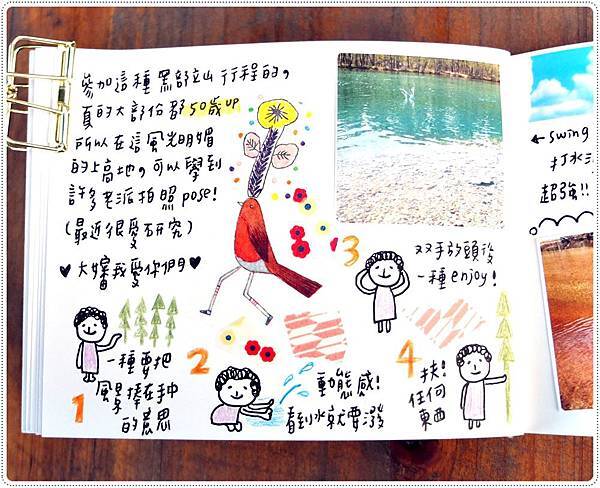 參加這種黑部立山行程的,
真的大部份都50歲up
所以在這風光明媚
的上高地,可以學到
許多老派拍照pose!
(最近很愛研究)
♥大嬸我愛你們♥
1
一種要把
風景捧在手中
的意思
2
動態感!
看到水就要潑
3
双手放頭後
一種enjoy!
4
扶!
任何
東西
←swing
打水
超強!!